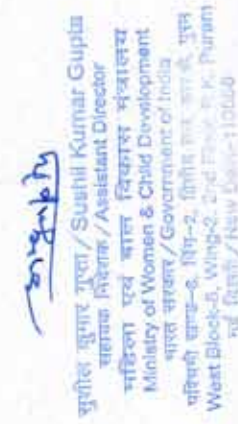 सुशील कुमार गुप्ता/Sushil Kumar Gupta
सहायक निदेशक/Assistant Director
महिला एवं बाल विकास मंत्रालय
Ministry of Women & Child Development
भारत सरकार/Government of India
पश्चिमी खण्ड-8, विंग-2,
West Block-8, Wing-2, 2nd Floor, R.K. Puram
नई दिल्ली/New Delhi-110066